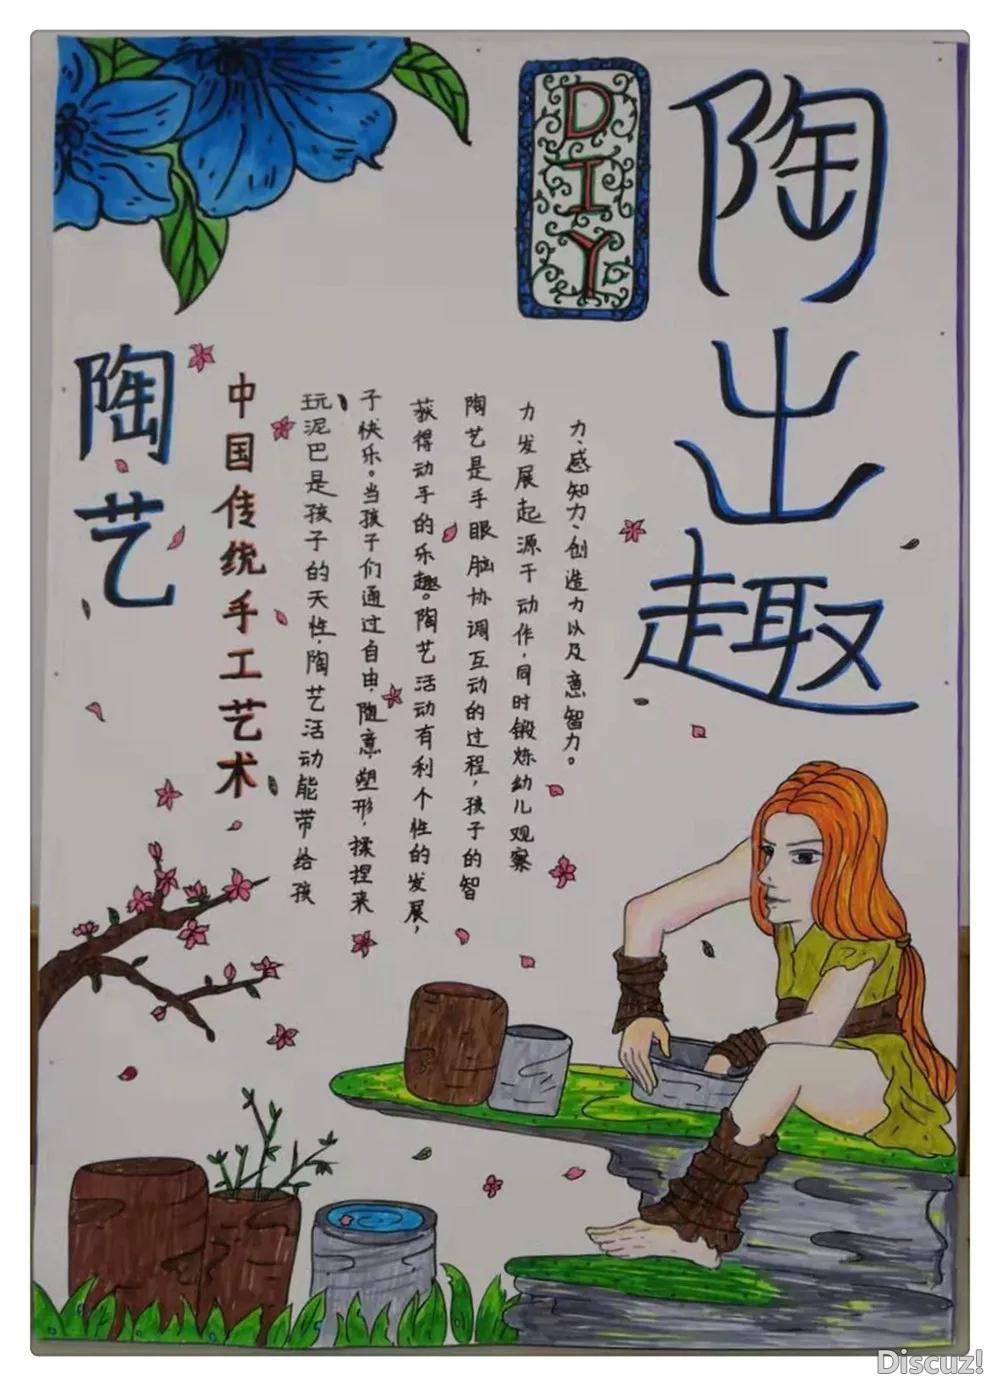 陶出趣
DIY
陶艺
中国传统手工艺术
玩泥巴是孩子的天性,陶艺活动能带给孩
子快乐。当孩子们通过自由、随意塑形,揉捏来
获得动手的乐趣。陶艺活动有利个性的发展,
陶艺是手眼脑协调互动的过程,孩子的智
力发展起源于动作,同时锻炼幼儿观察
力、感知力、创造力以及意智力。
Discuz!